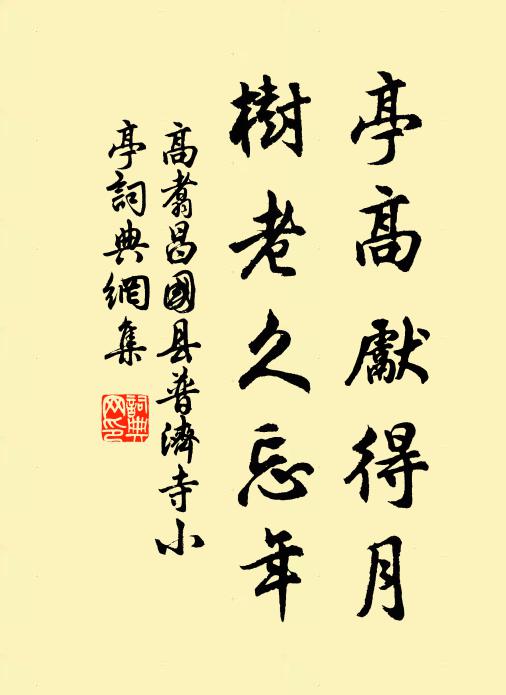 亭高獻得月
樹老久忘年
高翥昌國县普濟寺小
亭詞典網集
詞典
网印